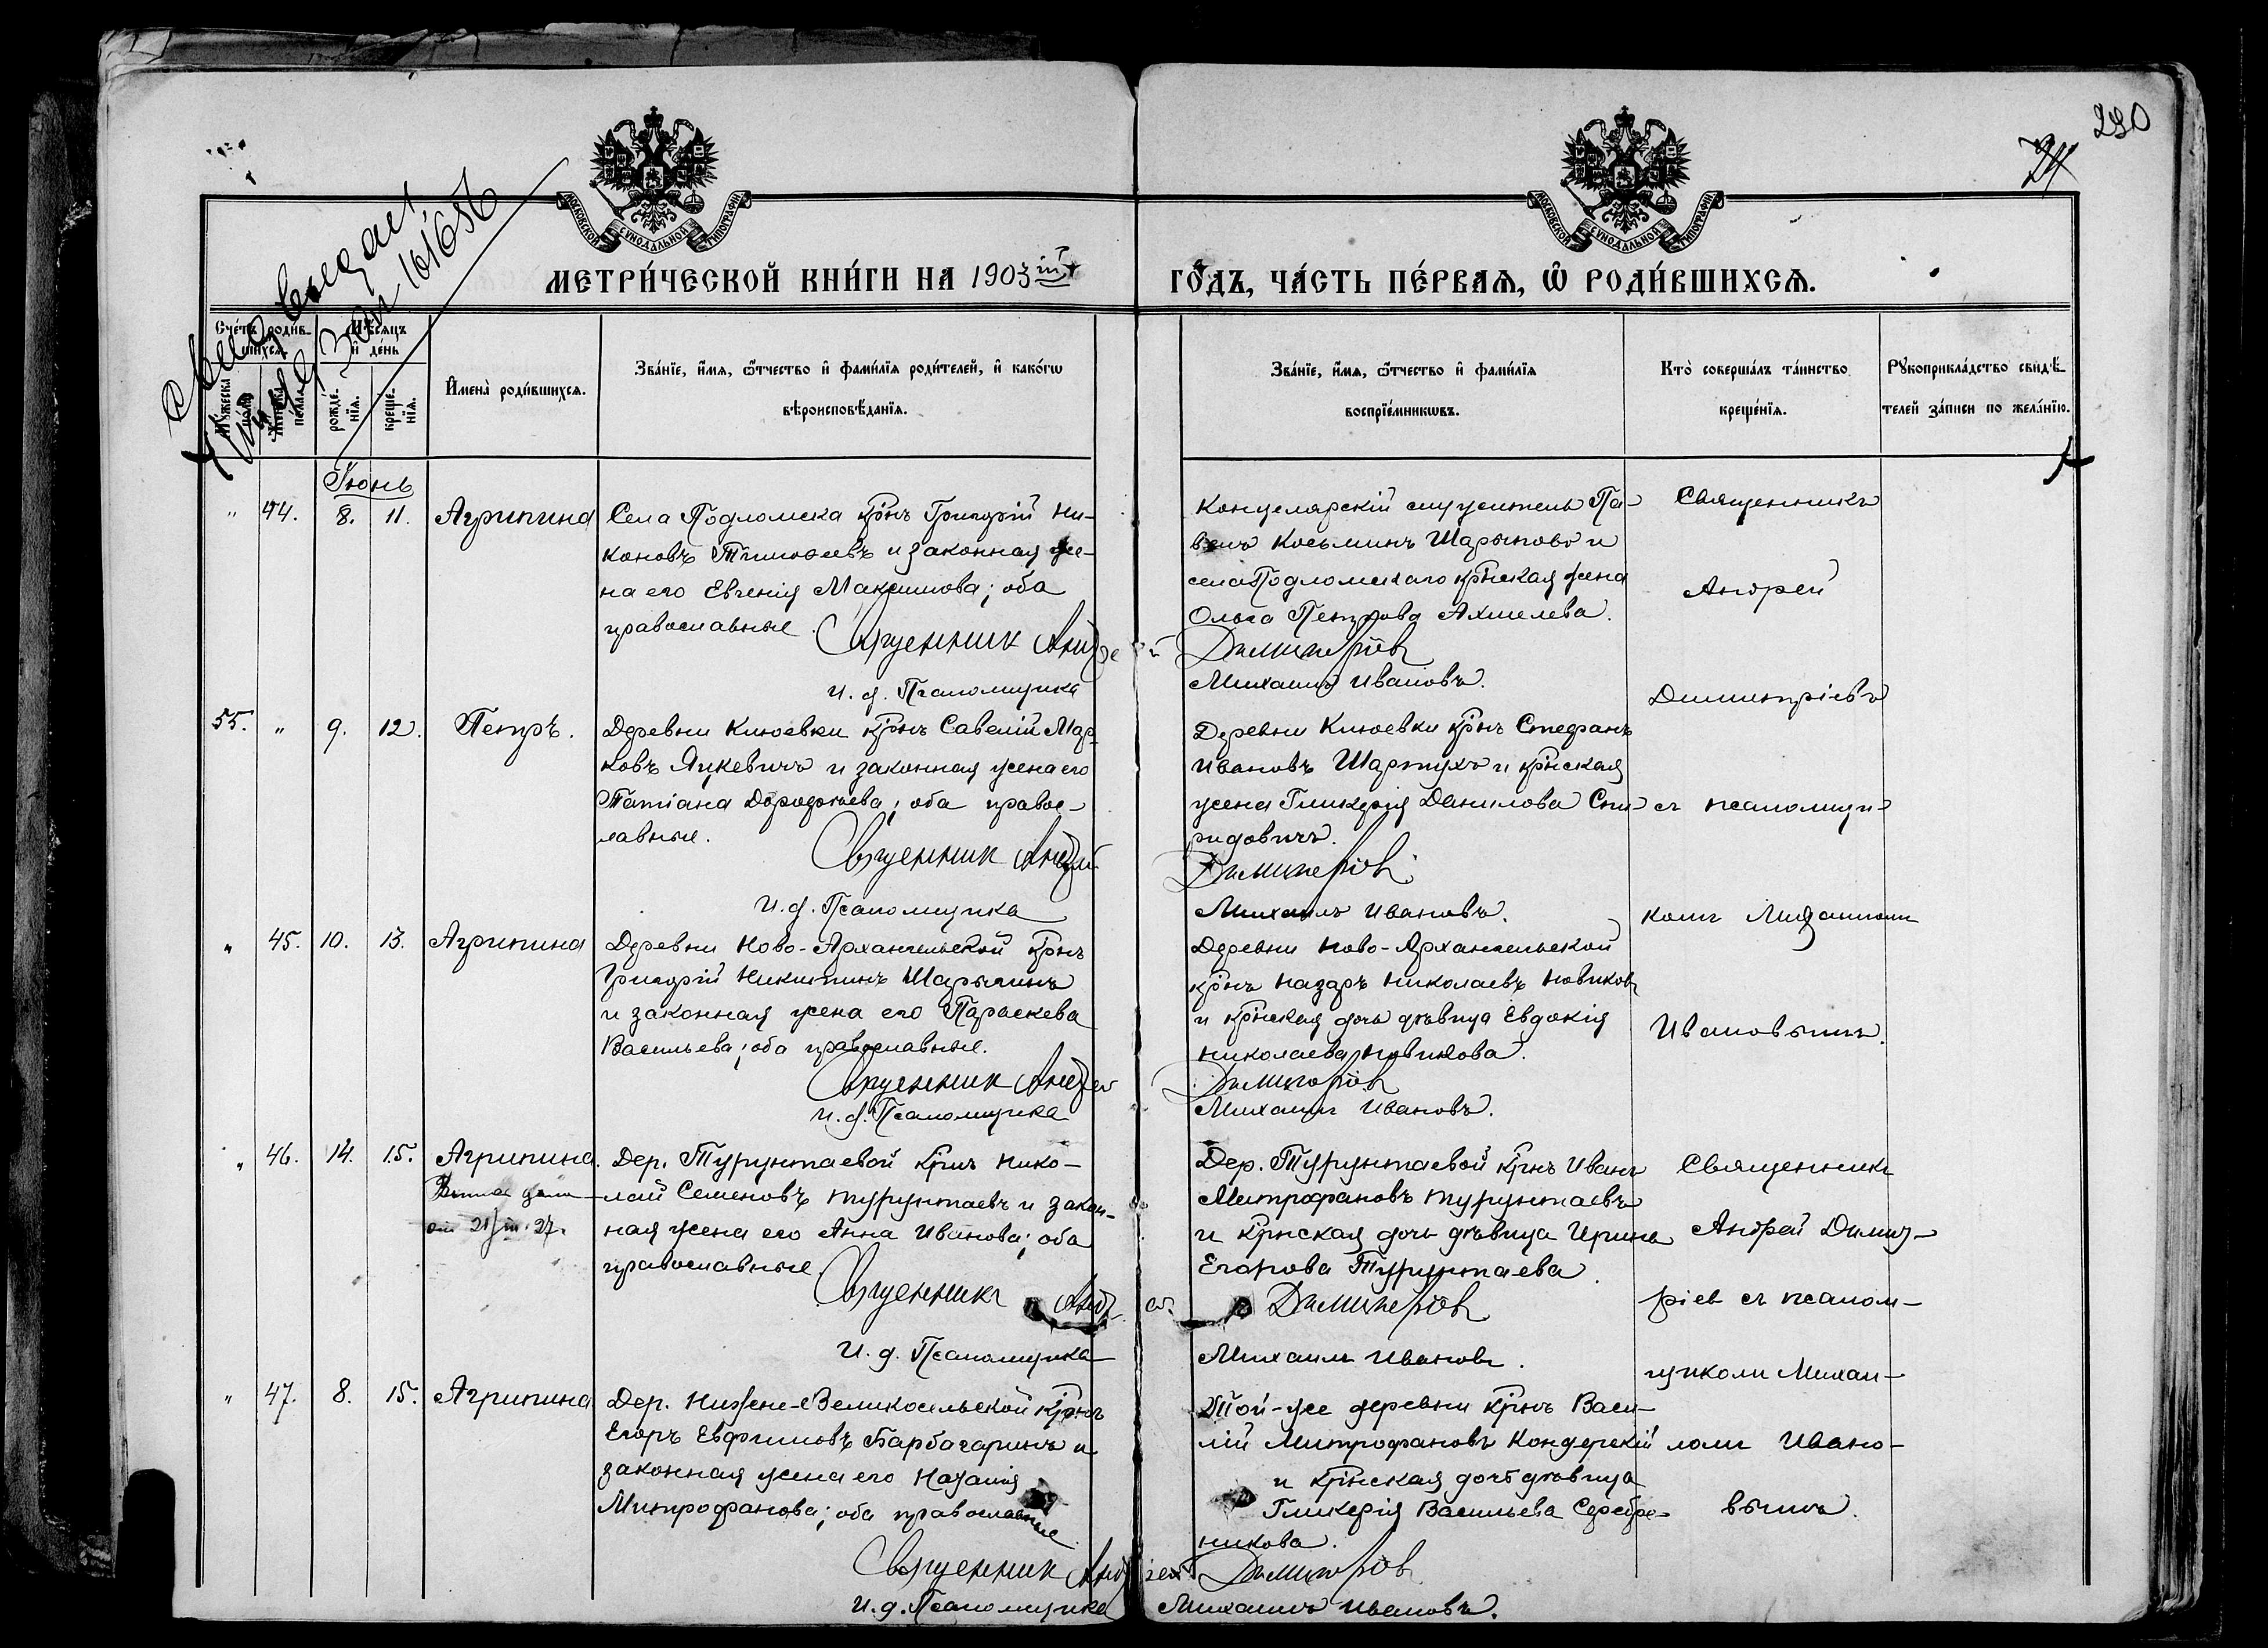 290
24
МОСКОВСКОЙ СУНОДАЛЬНОЙ ТИПОГРАФІИ
МОСКОВСКОЙ СУНОДАЛЬНОЙ ТИПОГРАФІИ
МЕТРИ́ЧЕСКОЙ КНИ́ГИ НА 1903ій
ГО́ДЪ, ЧА́СТЬ ПЕ́РВАѦ, Ѽ РОДИ́ВШИХСѦ.
Сче́тъ роди́вшихсѧ.
Мѣ́сѧцъ и҆ де́нь
Мꙋжеска по́ла.
Женска по́ла.
рожде́нїѧ.
креще́нїѧ.
И҆мена̀ роди́вшихсѧ.
Зва́нїе, и҆́мѧ, ѻ҆́тчество и҆ фами́лїѧ роди́телей, и҆ како́гѡ
вѣроисповѣ́данїѧ.
Зва́нїе, и҆́мѧ, ѻ҆́тчество и҆ фами́лїѧ
воспрїе́мникѡвъ.
Кто̀ соверша́лъ та́инство
креще́нїѧ.
Рꙋкоприкла́дство свидѣ́телей за́писи по жела́нїю.
Іюнь
" 44. 8. 11. Агрипина
Села Подломска крнъ Григорій Ни-
коновъ Тимофеевъ и законная же-
на его Евгенія Максимова; оба
православные.
Священник Андрей
И. д. Псаломщика
Концелярскій служитель Па-
велъ Косьминъ Шарыповъ и
села Подломскаго крнская жена
Ольга Петрова Ахмелева.
Димитріев
Михаилъ Ивановъ.
Священникъ
Андрей
Димитріевъ
55. " 9. 12. Петръ.
Деревни Клюевки крнъ Савелій Мар-
ковъ Яцкевичъ и законная жена его
Татіана Дорофеева; оба правос-
лавные.
Священник Андрей
И. д. Псаломщика
Деревни Клюевки крнъ Стефанъ
Ивановъ Шарпухъ и крнская
жена Гликерія Данилова Спи-
ридовичъ.
Димитріев
Михаилъ Ивановъ.
съ псаломщи-
комъ Михаиломъ
" 45. 10. 13. Агрипина
Деревни Ново-Архангельской крнъ
Григорій Никитинъ Шарыпинъ
и законная жена его Параскева
Васильева; оба православные.
Священник Андрей
И. д. Псаломщика
Деревни Ново-Архангельской
крнъ Назаръ Николаевъ Новиковъ
и крнская дочь дѣвица Евдокія
Николаева Новикова.
Димитріев
Михаилъ Ивановъ.
Ивановымъ.
" 46. 14. 15. Агрипина.
от 21/III 27.
Дер. Турунтаевой крнъ Нико-
лай Семеновъ Турунтаевъ и закон-
ная жена его Анна Иванова; оба
православные.
Священникъ Андрей
И. д. Псаломщика
Дер. Турунтаевой крнъ Иванъ
Митрофановъ Турунтаевъ
и крнская дочь дѣвица Ирина
Егорова Турунтаева.
Димитріев
Михаилъ Ивановъ.
Священникъ
Андрей Димит-
ріев съ псалом-
щиком Михаи-
" 47. 8. 15. Агрипина
Дер. Нижне-Великосельской крнъ
Егоръ Евфимовъ Барбачаринъ и
законная жена его Наталія
Митрофанова; оба православные
Священник Андрей
И. д. Псаломщика
Той-же деревни крнъ Васи-
лій Митрофановъ Кондерскій
и крнская дочь дѣвица
Гликерія Васильева Серебре-
никова.
Димитріев
Михаилъ Ивановъ.
ломъ Ивано-
вымъ.